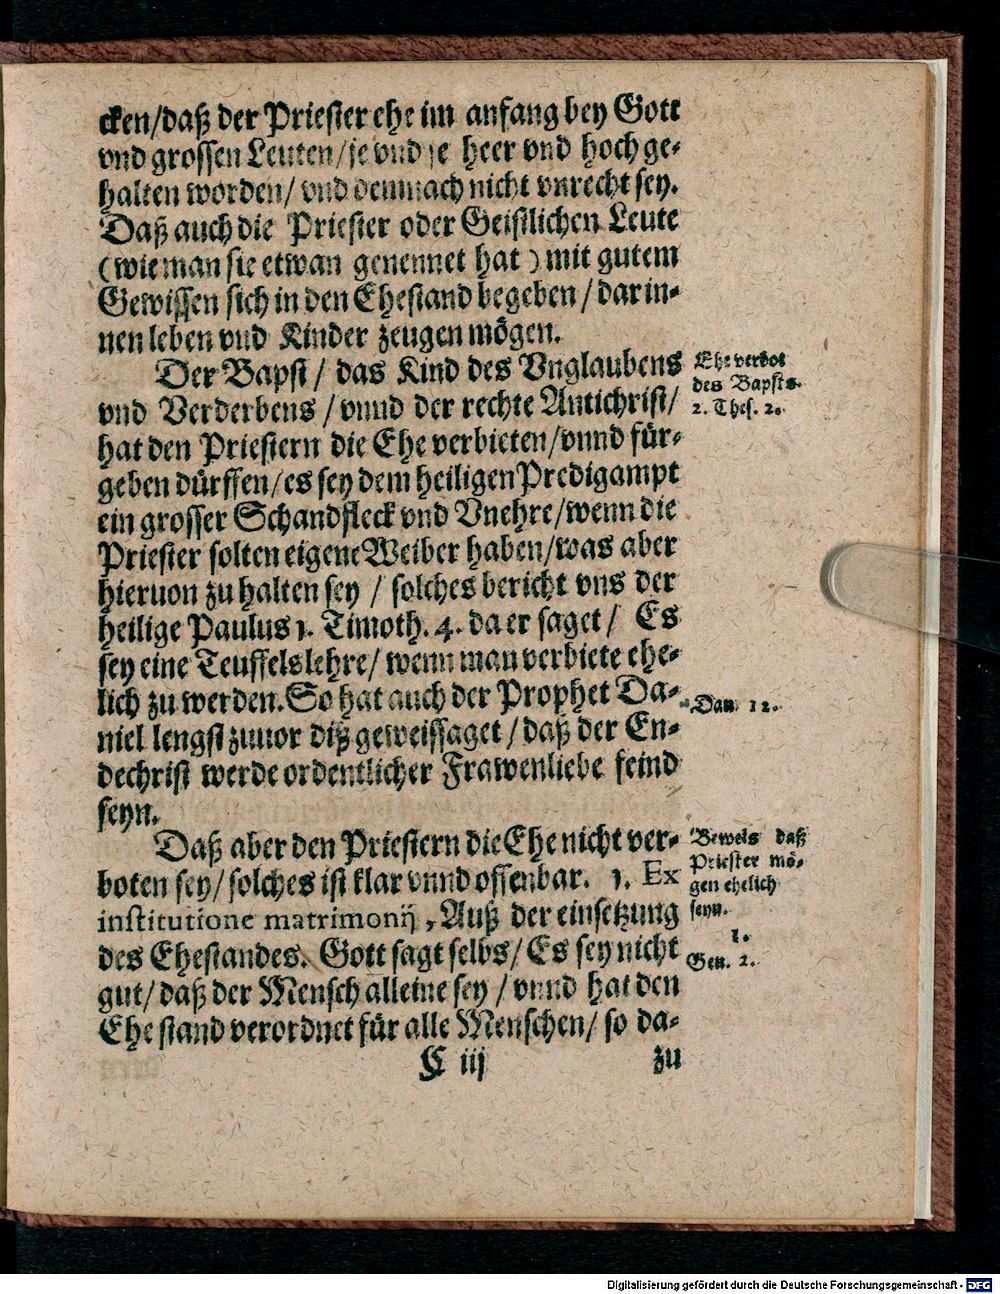 cken/daß der Priester ehe im anfang bey Gott
vnd grossen Leuten/je vnd je heer vnd hoch ge-
halten worden/ vnd demnach nicht vnrecht sey.
Daß auch die Priester oder Geistlichen Leute
(wie man sie etwan genennet hat) mit gutem
Gewissen sich in den Ehestand begeben / darin-
nen leben vnd Kinder zeugen mögen.
Der Bapst / das Kind des Vnglaubens
vnd Verderbens / vnnd der rechte Antichrist/
hat den Priestern die Ehe verbieten/vnnd für-
geben dürffen/es sey dem heiligen Predigampt
ein grosser Schandfleck vnd Vnehre/wenn die
Priester solten eigene Weiber haben/was aber
hieruon zu halten sey / solches bericht vns der
heilige Paulus 1. Timoth. 4. da er saget / Es
sey eine Teuffelslehre/ wenn man verbiete ehe-
lich zu werden. So hat auch der Prophet Da-
niel lengst zuuor diß geweissaget / daß der En-
dechrist werde ordentlicher Frawenliebe feind
seyn.
Daß aber den Priestern die Ehe nicht ver-
boten sey/ solches ist klar vnnd offenbar. 1. Ex
institutione matrimonij, Auß der einsetzung
des Ehestandes. Gott sagt selbs/ Es sey nicht
gut/ daß der Mensch alleine sey / vnnd hat den
Ehestand verordnet für alle Menschen/ so da-
C iij zu
Ehe verbot
des Bapsts.
2. Thes. 2.
Dan. 12.
Beweis daß
Priester mö-
gen ehelich
seyn.
1.
Gen. 2.
Digitalisierung gefördert durch die Deutsche Forschungsgemeinschaft - DFG